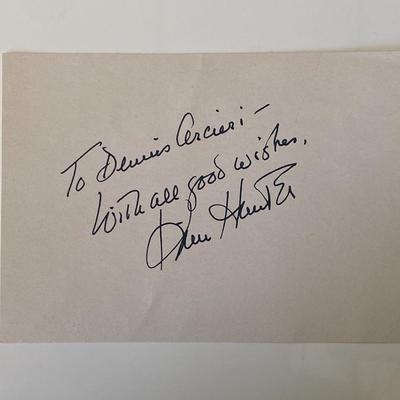 To Dennis Arcieri –
With all good wishes,
Kim Hunter